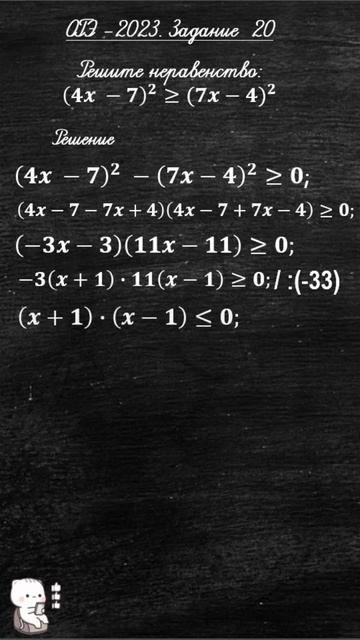 ОГЭ – 2023. Задание 20
Решите неравенство:
(4x − 7)² ≥ (7x − 4)²
Решение
(4x − 7)² − (7x − 4)² ≥ 0;
(4x − 7 − 7x + 4)(4x − 7 + 7x − 4) ≥ 0;
(−3x − 3)(11x − 11) ≥ 0;
−3(x + 1) · 11(x − 1) ≥ 0; / :(-33)
(x + 1) · (x − 1) ≤ 0;